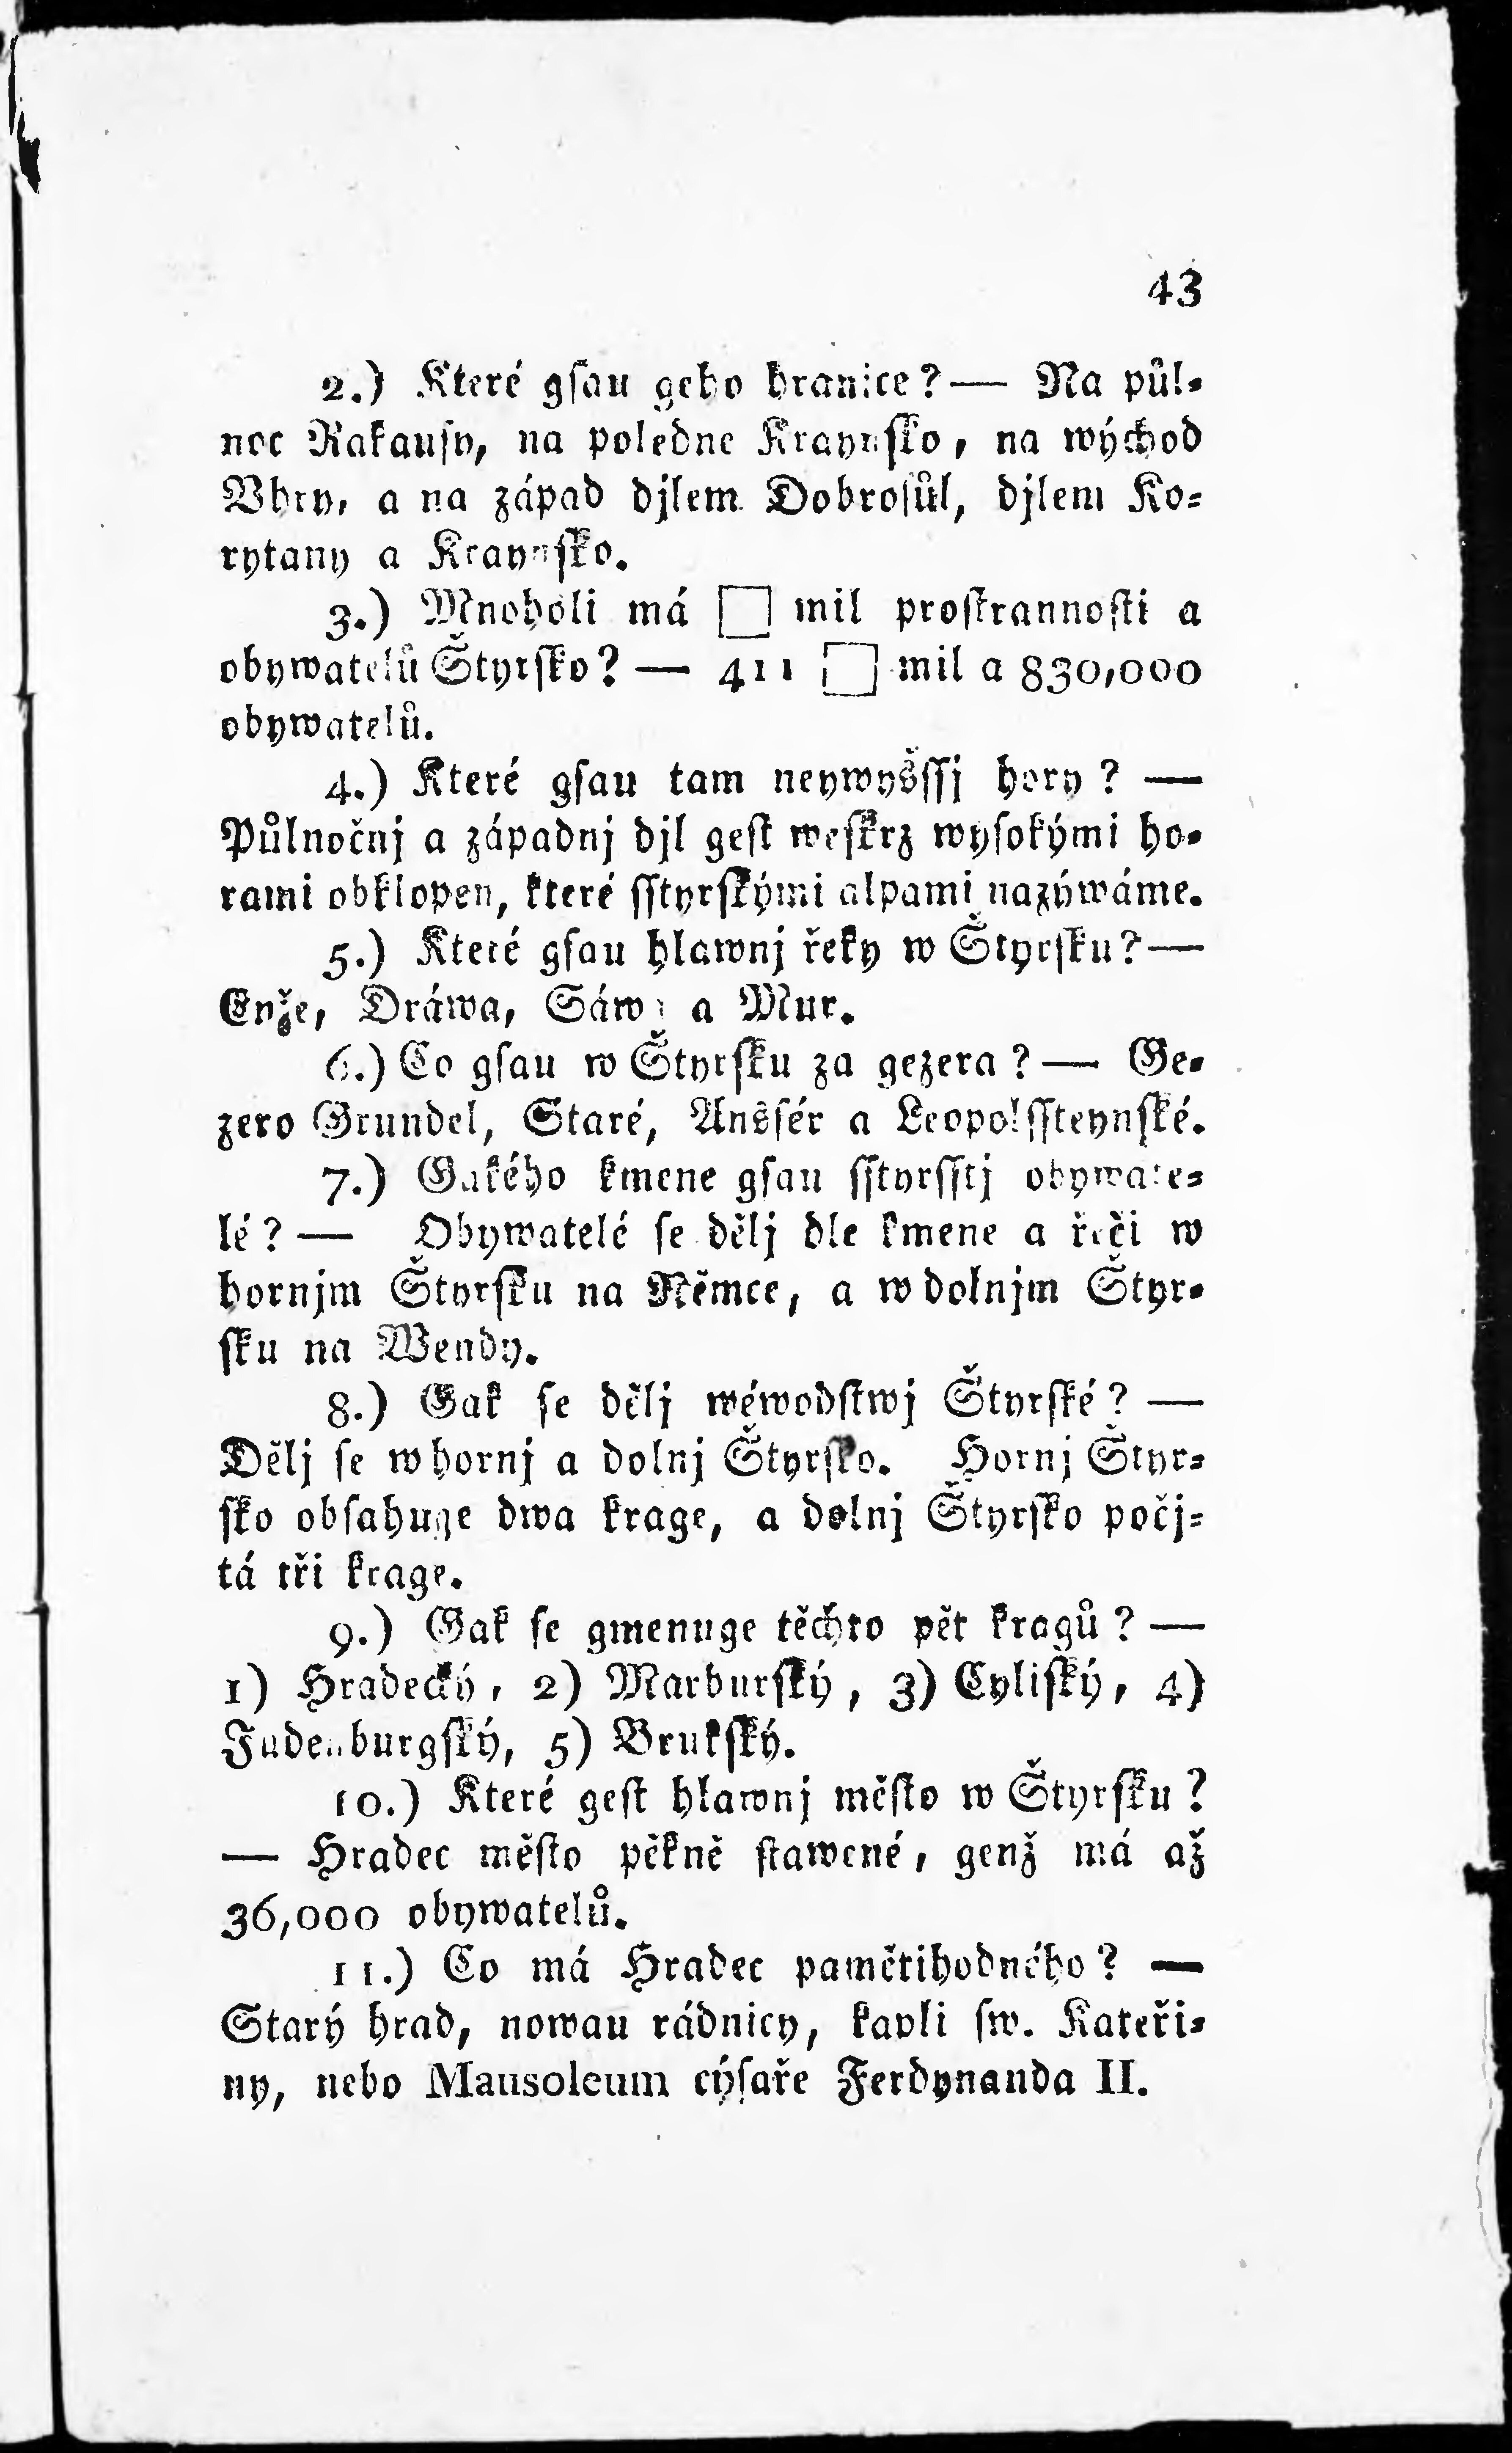 43
2.) Které gſau geho hranice? — Na půl-
noc Rakauſy, na poledne Kraynſko, na wýchod
Vhry, a na západ djlem Dobroſůl, djlem Ko-
rytany a Kraynſko.
3.) Mnoholi má □ mil proſtrannoſti a
obywatelů Štyrſko? — 411 □ mil a 830,000
obywatelů.
4.) Které gſau tam neywyšſſj hory? —
Půlnočnj a západnj djl geſt weſkrz wyſokými ho-
rami obklopen, které ſſtyrſkými alpami nazýwáme.
5.) Které gſau hlawnj řeky w Štyrſku? —
Enže, Dráwa, Sáwa a Mur.
6.) Co gſau w Štyrſku za gezera? — Ge-
zero Grundel, Staré, Ansſér a Leopolſſteynſké.
7.) Gakého kmene gſau ſſtyrſſtj obywate-
lé? — Obywatelé ſe dělj dle kmene a řeči w
hornjm Štyrſku na Němce, a w dolnjm Štyr-
ſku na Wendy.
8.) Gak ſe dělj wéwodſtwj Štyrſké? —
Dělj ſe w hornj a dolnj Štyrſko. Hornj Štyr-
ſko obſahuge dwa krage, a dolnj Štyrſko počj-
tá tři krage.
9.) Gak ſe gmenuge těchto pět kragů? —
1) Hradecký, 2) Marburſký, 3) Cyliſký, 4)
Judenburgſký, 5) Brukſký.
10.) Které geſt hlawnj měſto w Štyrſku?
— Hradec měſto pěkně ſtawené, genž má až
36,000 obywatelů.
11.) Co má Hradec pamětihodného? —
Starý hrad, nowau rádnicy, kapli ſw. Kateři-
ny, nebo Mausoleum cýſaře Ferdynanda II.